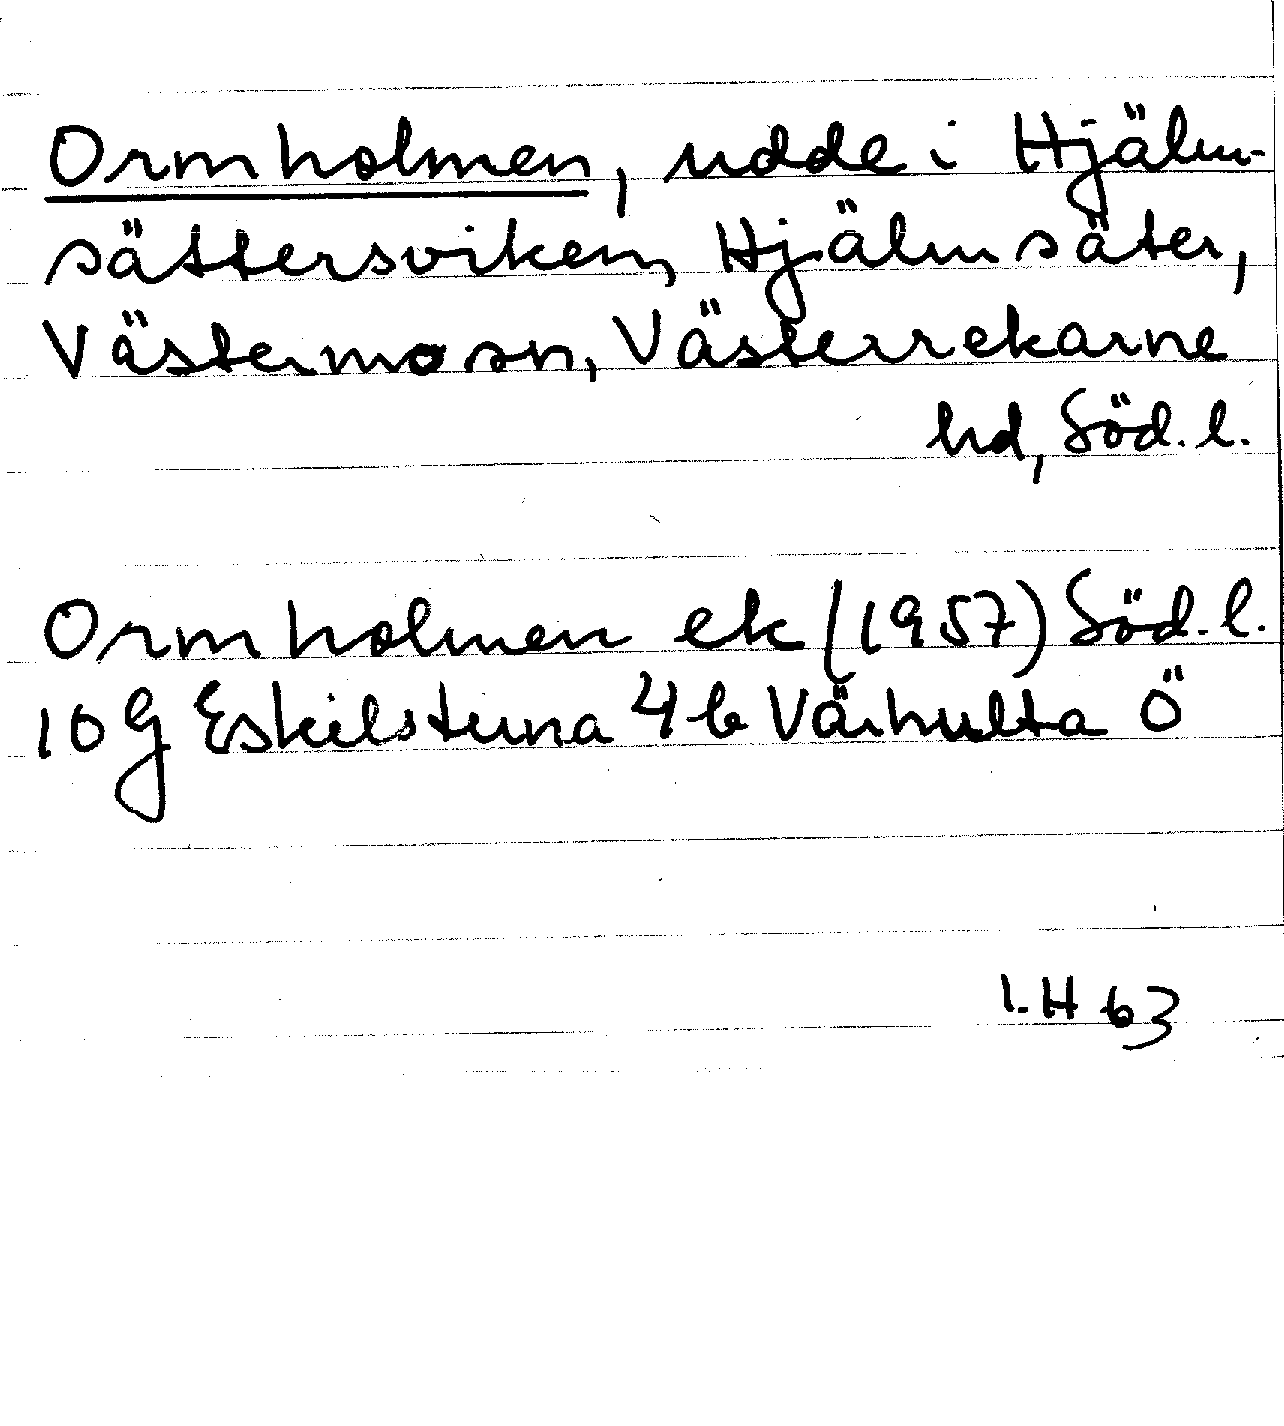 Ormholmen, udde i Hjälm-
sättersviken, Hjälmsäter,
Västermo sn, Västerrekarne
hd, Söd. l.
Ormholmen ek (1957) Söd. l.
10 G Eskilstuna 4 b Värhulta Ö
I. H 63